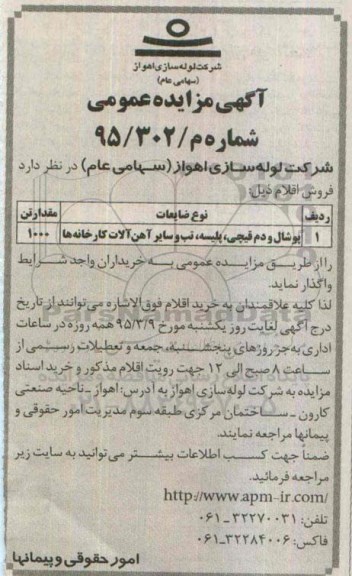 شرکت لوله سازی اهواز
(سهامی عام)
آگهی مزایده عمومی
شماره م/۹۵/۳۰۲
شرکت لوله سازی اهواز (سهامی عام) در نظر دارد
فروش اقلام ذیل:
ردیف نوع ضایعات مقدار تن
۱ پوشال و دم قیچی، پلیسه، تب و سایر آهن آلات کارخانه ها ۱۰۰۰
را از طریق مزایده عمومی به خریداران واجد شرایط
واگذار نماید.
لذا کلیه علاقمندان به خرید اقلام فوق الاشاره می توانند از تاریخ
درج آگهی لغایت روز یکشنبه مورخ ۹۵/۳/۹ همه روزه در ساعات
اداری به جز روزهای پنجشنبه، جمعه و تعطیلات رسمی از
ساعت ۸ صبح الی ۱۲ جهت رویت اقلام مذکور و خرید اسناد
مزایده به شرکت لوله سازی اهواز به آدرس: اهواز ـ ناحیه صنعتی
کارون ـ ساختمان مرکزی طبقه سوم مدیریت امور حقوقی و
پیمانها مراجعه نمایند.
ضمناً جهت کسب اطلاعات بیشتر می توانید به سایت زیر
مراجعه فرمائید.
http://www.apm-ir.com/
تلفن: ۳۲۲۷۰۰۳۱-۰۶۱
فاکس: ۳۲۲۸۴۰۰۶-۰۶۱
امور حقوقی و پیمانها